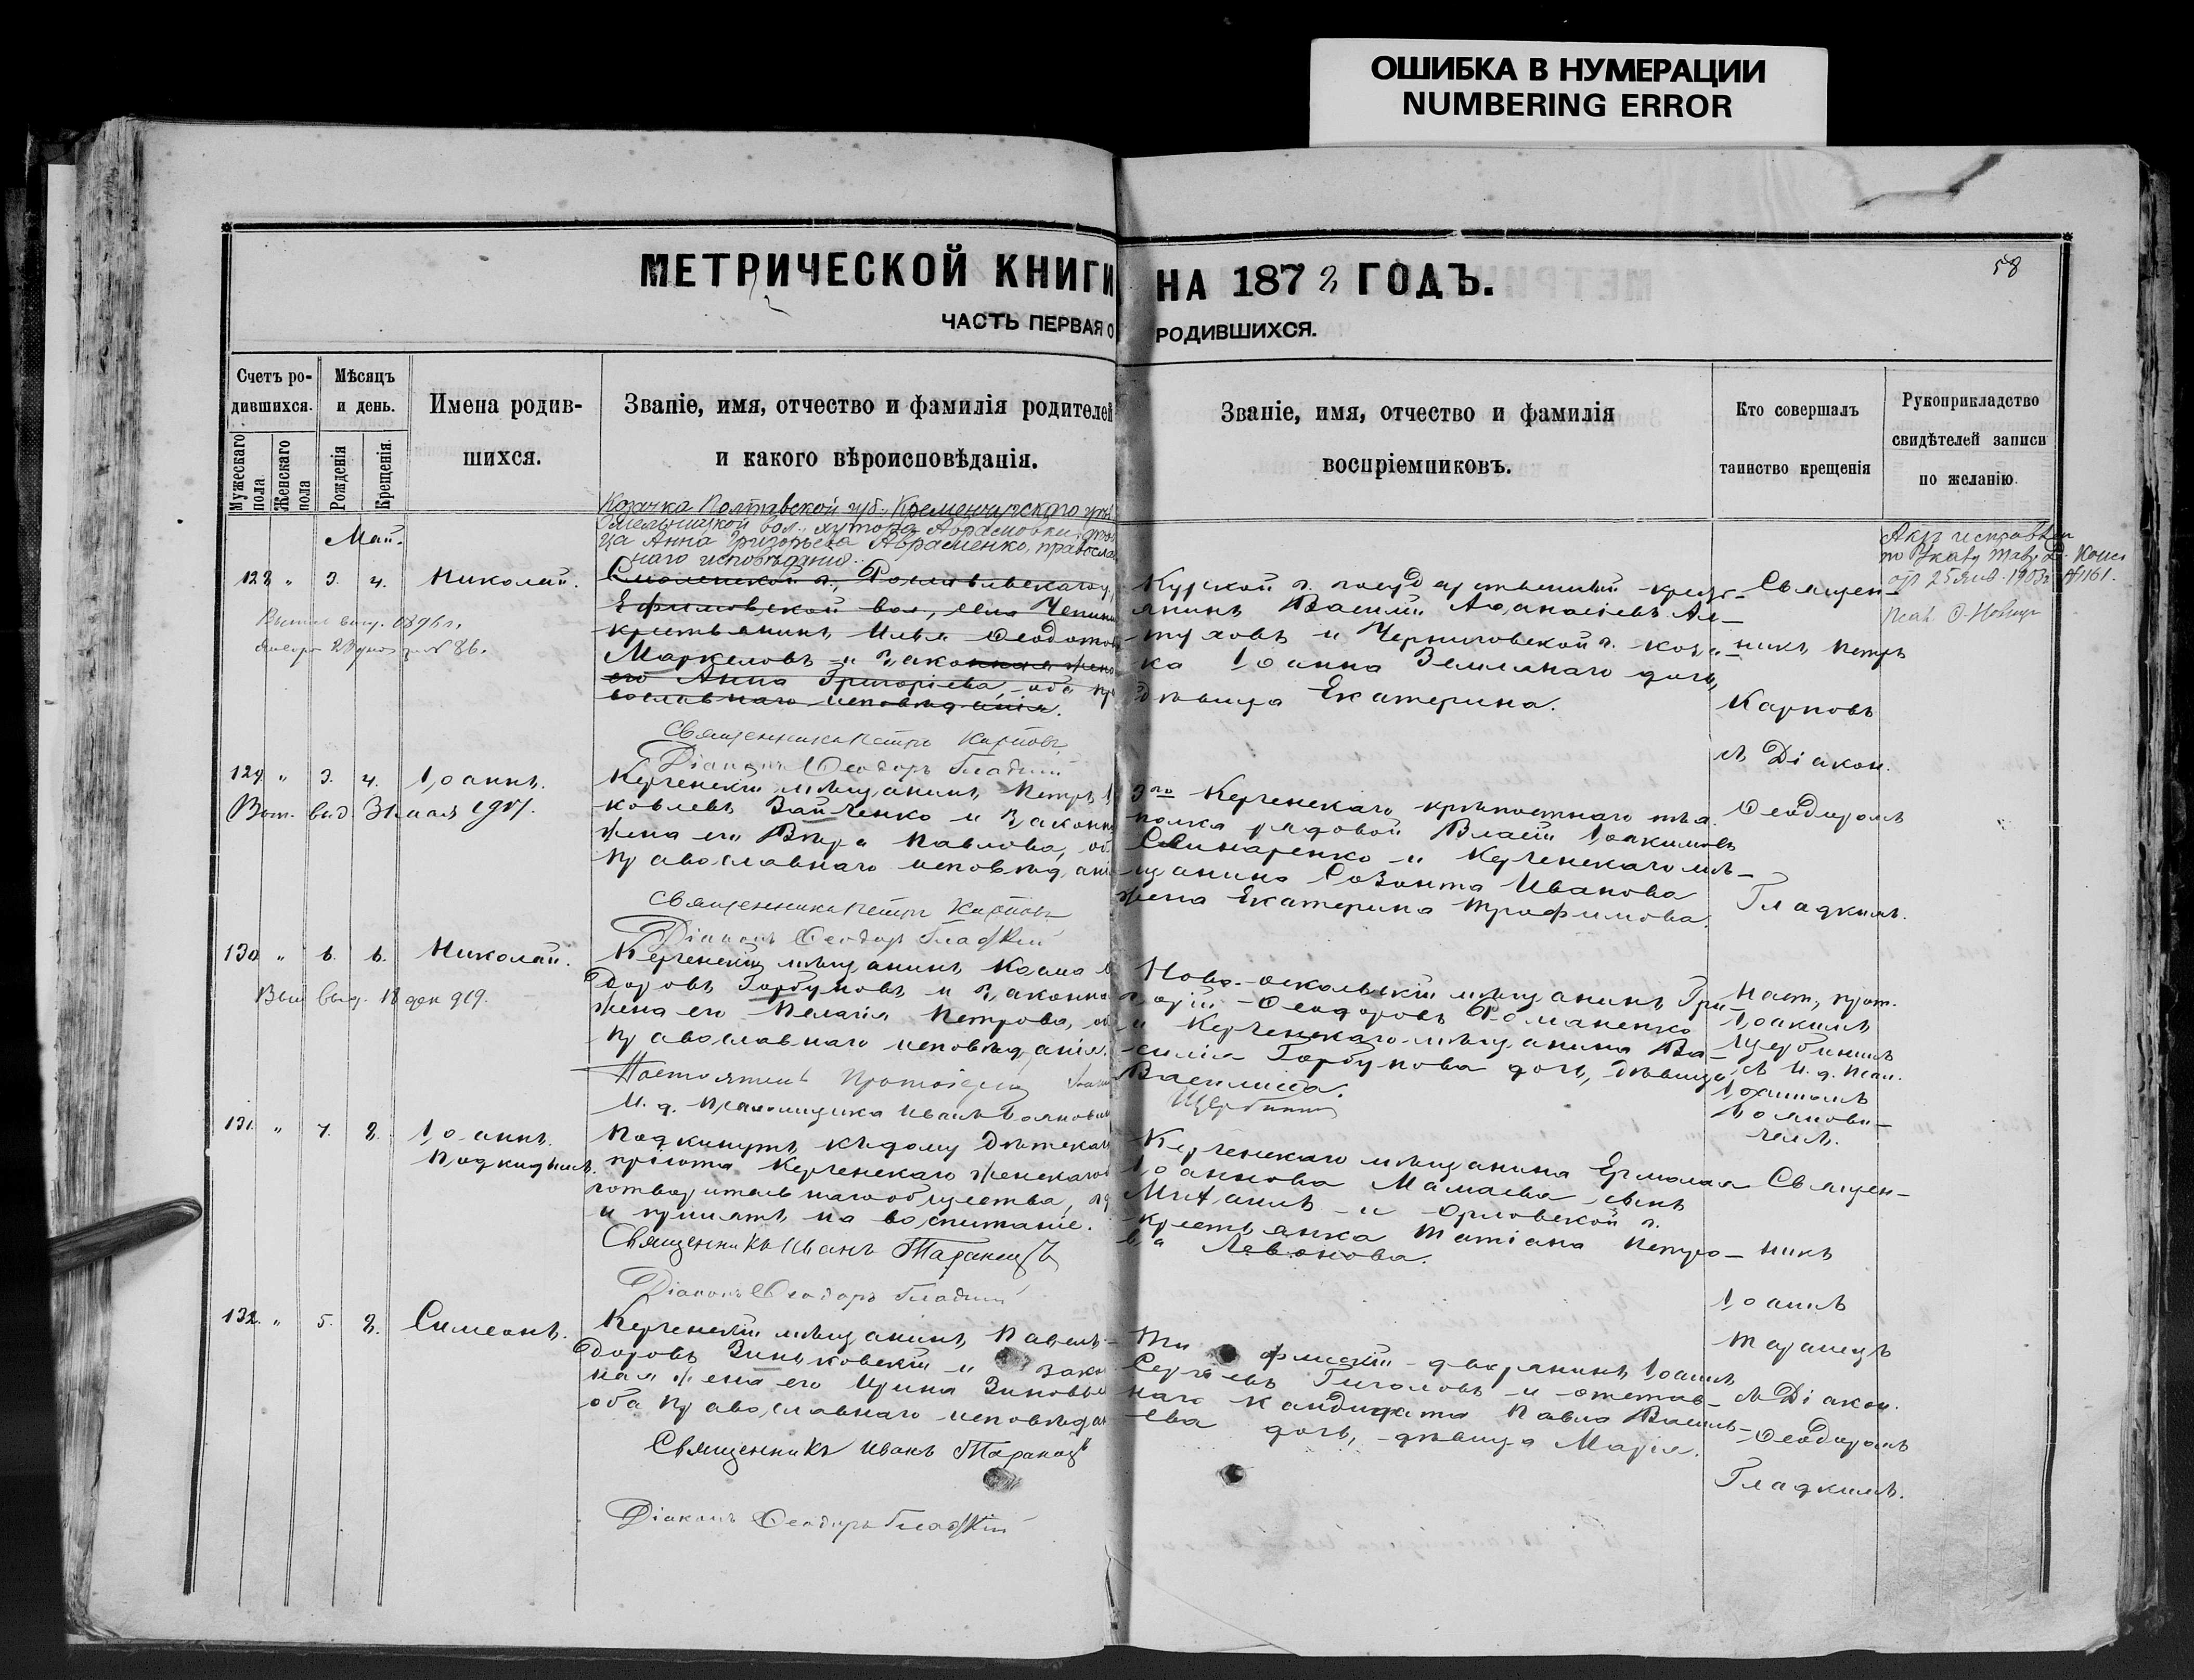 ОШИБКА В НУМЕРАЦИИ
NUMBERING ERROR
МЕТРИЧЕСКОЙ КНИГИ НА 1872 ГОДЪ.
58
ЧАСТЬ ПЕРВАЯ О РОДИВШИХСЯ.
Счетъ ро-
дившихся.
Мужескаго пола
Женскаго пола
Мѣсяцъ
и день.
Рожденія
Крещенія.
Имена родив-
шихся.
Званіе, имя, отчество и фамилія родителей
и какого вѣроисповѣданія.
Званіе, имя, отчество и фамилія
воспріемниковъ.
Кто совершалъ
таинство крещенія
Рукоприкладство
свидѣтелей записи
по желанію.
Май.
128 " 3. 4. Николай.
Козачка Полтавской губ. Кременчугскаго
вол. хутора Аврамовки,
ца Анна Григорьева Авраменко, правосла
наго исповѣданія.
Смоленской г., Рославльскаго у.
Ефимовской вол., села
крестьянинъ Илья Ѳеодотов
Маркеловъ и законная жена
его Анна Григорьева, оба пр
вославнаго исповѣданія.
Священникъ Петръ Карповъ
Діаконъ Ѳеодоръ Гладкій
Курской г. государственный крест-
янинъ Василій Аѳанасіевъ Ал-
туховъ и Черниговской г. коза-
ка Іоанна Землянаго дочь,
дѣвица Екатерина.
Священ-
никъ Петръ
Карповъ
съ Діакон.
Ѳеодоромъ
Гладкимъ.
Актъ исправлен
по Указу Тавр. Д. Конс
отъ 25 янв. 1903 г. №1161.
129 " 3. 4. Іоаннъ.
31 мая
Керченскій мѣщанинъ Петръ
ковлевъ Зайченко и законн
жена его Вѣра Павлова, об
православнаго исповѣданія
Священникъ Петръ Карповъ
Діаконъ Ѳеодоръ Гладкій
3го Керченскаго крѣпостнаго
полка рядовой Власій Іоакимовъ
Свинаренко и Керченскаго мѣ-
щанина Созонта Иванова
жена Екатерина Трофимова.
130 " 6. 6. Николай.
Керченскій мѣщанинъ Косма
доровъ Горбуновъ и законна
жена его Пелагія Петрова, об
православнаго исповѣданія.
Настоятель Протоіерей Іоаки
И. д. Псаломщика Иванъ Іоанович
Ново-оскольскій мѣщанинъ Гри-
горій Ѳеодоровъ Романенко
и Керченскаго мѣщанина Ва-
силія Горбунова дочь, дѣвица
Василиса.
Щербининъ
Наст, прот.
Іоакимъ
Щербининъ
съ И. д. Псал.
131. " 7. 8. Іоаннъ.
Подкидышъ.
Подкинутъ къ дому Дѣтскаго
пріюта Керченскаго Женскаго
готворительнаго общества,
и принятъ на воспитаніе.
Священникъ Иванъ Таранецъ
Діаконъ Ѳеодоръ Гладкій
Керченскаго мѣщанина Ермолая
Іоаннова Мамаева сынъ
Михаилъ и Орловской г.
крестьянка Татіана Петро-
ва Левонова.
Священ-
никъ
Іоаннъ
Таранецъ
съ Діакон.
Ѳеодоромъ
Гладкимъ.
132. " 5. 8. Симеонъ.
Керченскій мѣщанинъ Павелъ
доровъ Зиньковскій и зако
ная жена его Ирина Зиновье
оба православнаго исповѣда
Священникъ Иванъ Таранецъ
Діаконъ Ѳеодоръ Гладкій
дворянинъ Іоаннъ
Сергѣевъ Гиголовъ и отстав-
наго Кандидата Павла Василь-
ева дочь, дѣвица Марія.